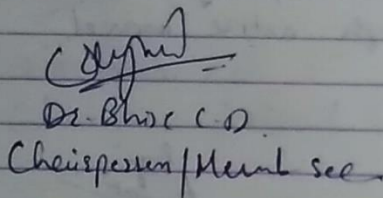 Dr. Bhise C.D.
Chairperson/Memb Sec.